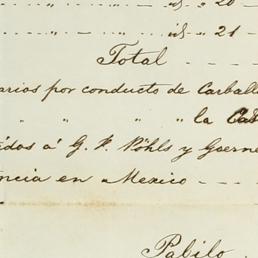 " " " id 20
" " " id 21
Total
arios por conducto de Carball
" " " " la
idos á G. F. Pöhls y Goerne
ncia en Mexico
Pabilo